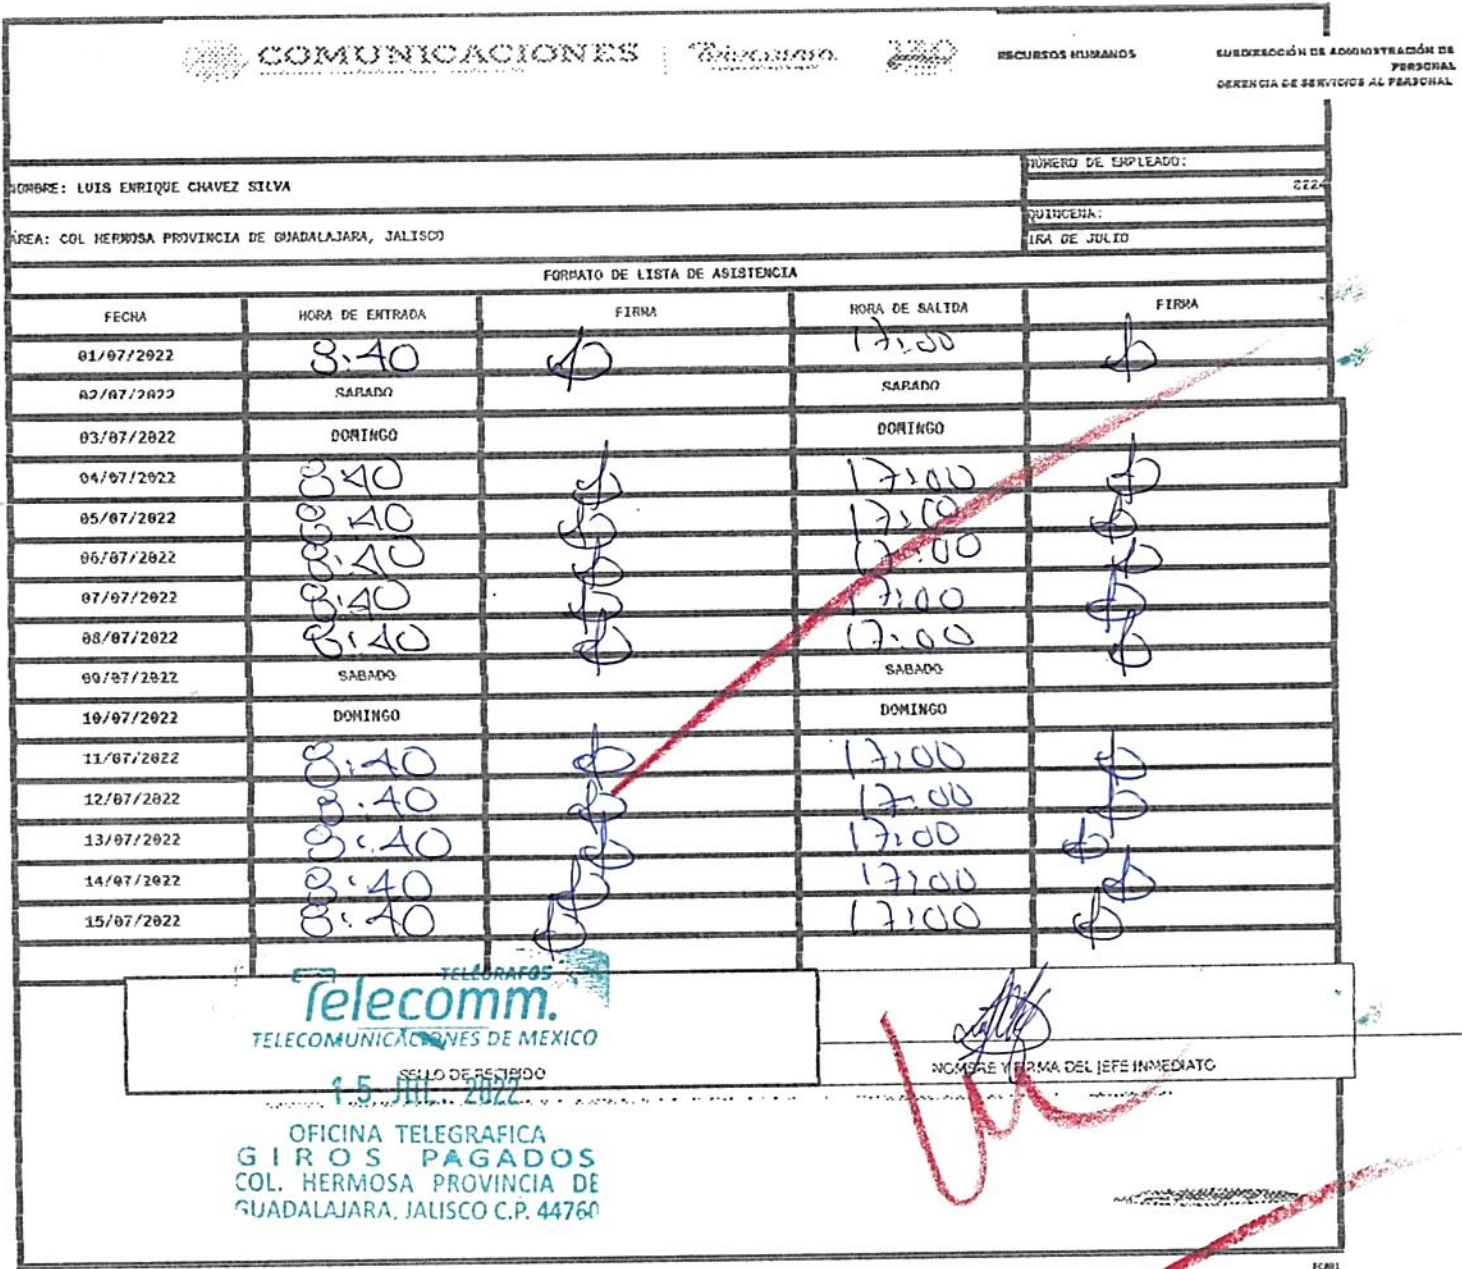 COMUNICACIONES | Telecomm. RECURSOS HUMANOS
SUBDIRECCIÓN DE ADMINISTRACIÓN DE PERSONAL
GERENCIA DE SERVICIOS AL PERSONAL
NOMBRE: LUIS ENRIQUE CHAVEZ SILVA
NÚMERO DE EMPLEADO:
ÁREA: COL HERMOSA PROVINCIA DE GUADALAJARA, JALISCO
QUINCENA:
1RA DE JULIO
FORMATO DE LISTA DE ASISTENCIA
FECHA HORA DE ENTRADA FIRMA HORA DE SALIDA FIRMA
01/07/2022 8:40 17:00
02/07/2022 SABADO SABADO
03/07/2022 DOMINGO DOMINGO
04/07/2022 8:40 17:00
05/07/2022 8:40 17:00
06/07/2022 8:40 17:00
07/07/2022 8:40 17:00
08/07/2022 8:40 17:00
09/07/2022 SABADO SABADO
10/07/2022 DOMINGO DOMINGO
11/07/2022 8:40 17:00
12/07/2022 8:40 17:00
13/07/2022 8:40 17:00
14/07/2022 8:40 17:00
15/07/2022 8:40 17:00
TELÉGRAFOS
Telecomm.
TELECOMUNICACIONES DE MEXICO
SELLO DE RECIBIDO
NOMBRE Y FIRMA DEL JEFE INMEDIATO
15 JUL. 2022
OFICINA TELEGRAFICA
GIROS PAGADOS
COL. HERMOSA PROVINCIA DE
GUADALAJARA, JALISCO C.P. 44760